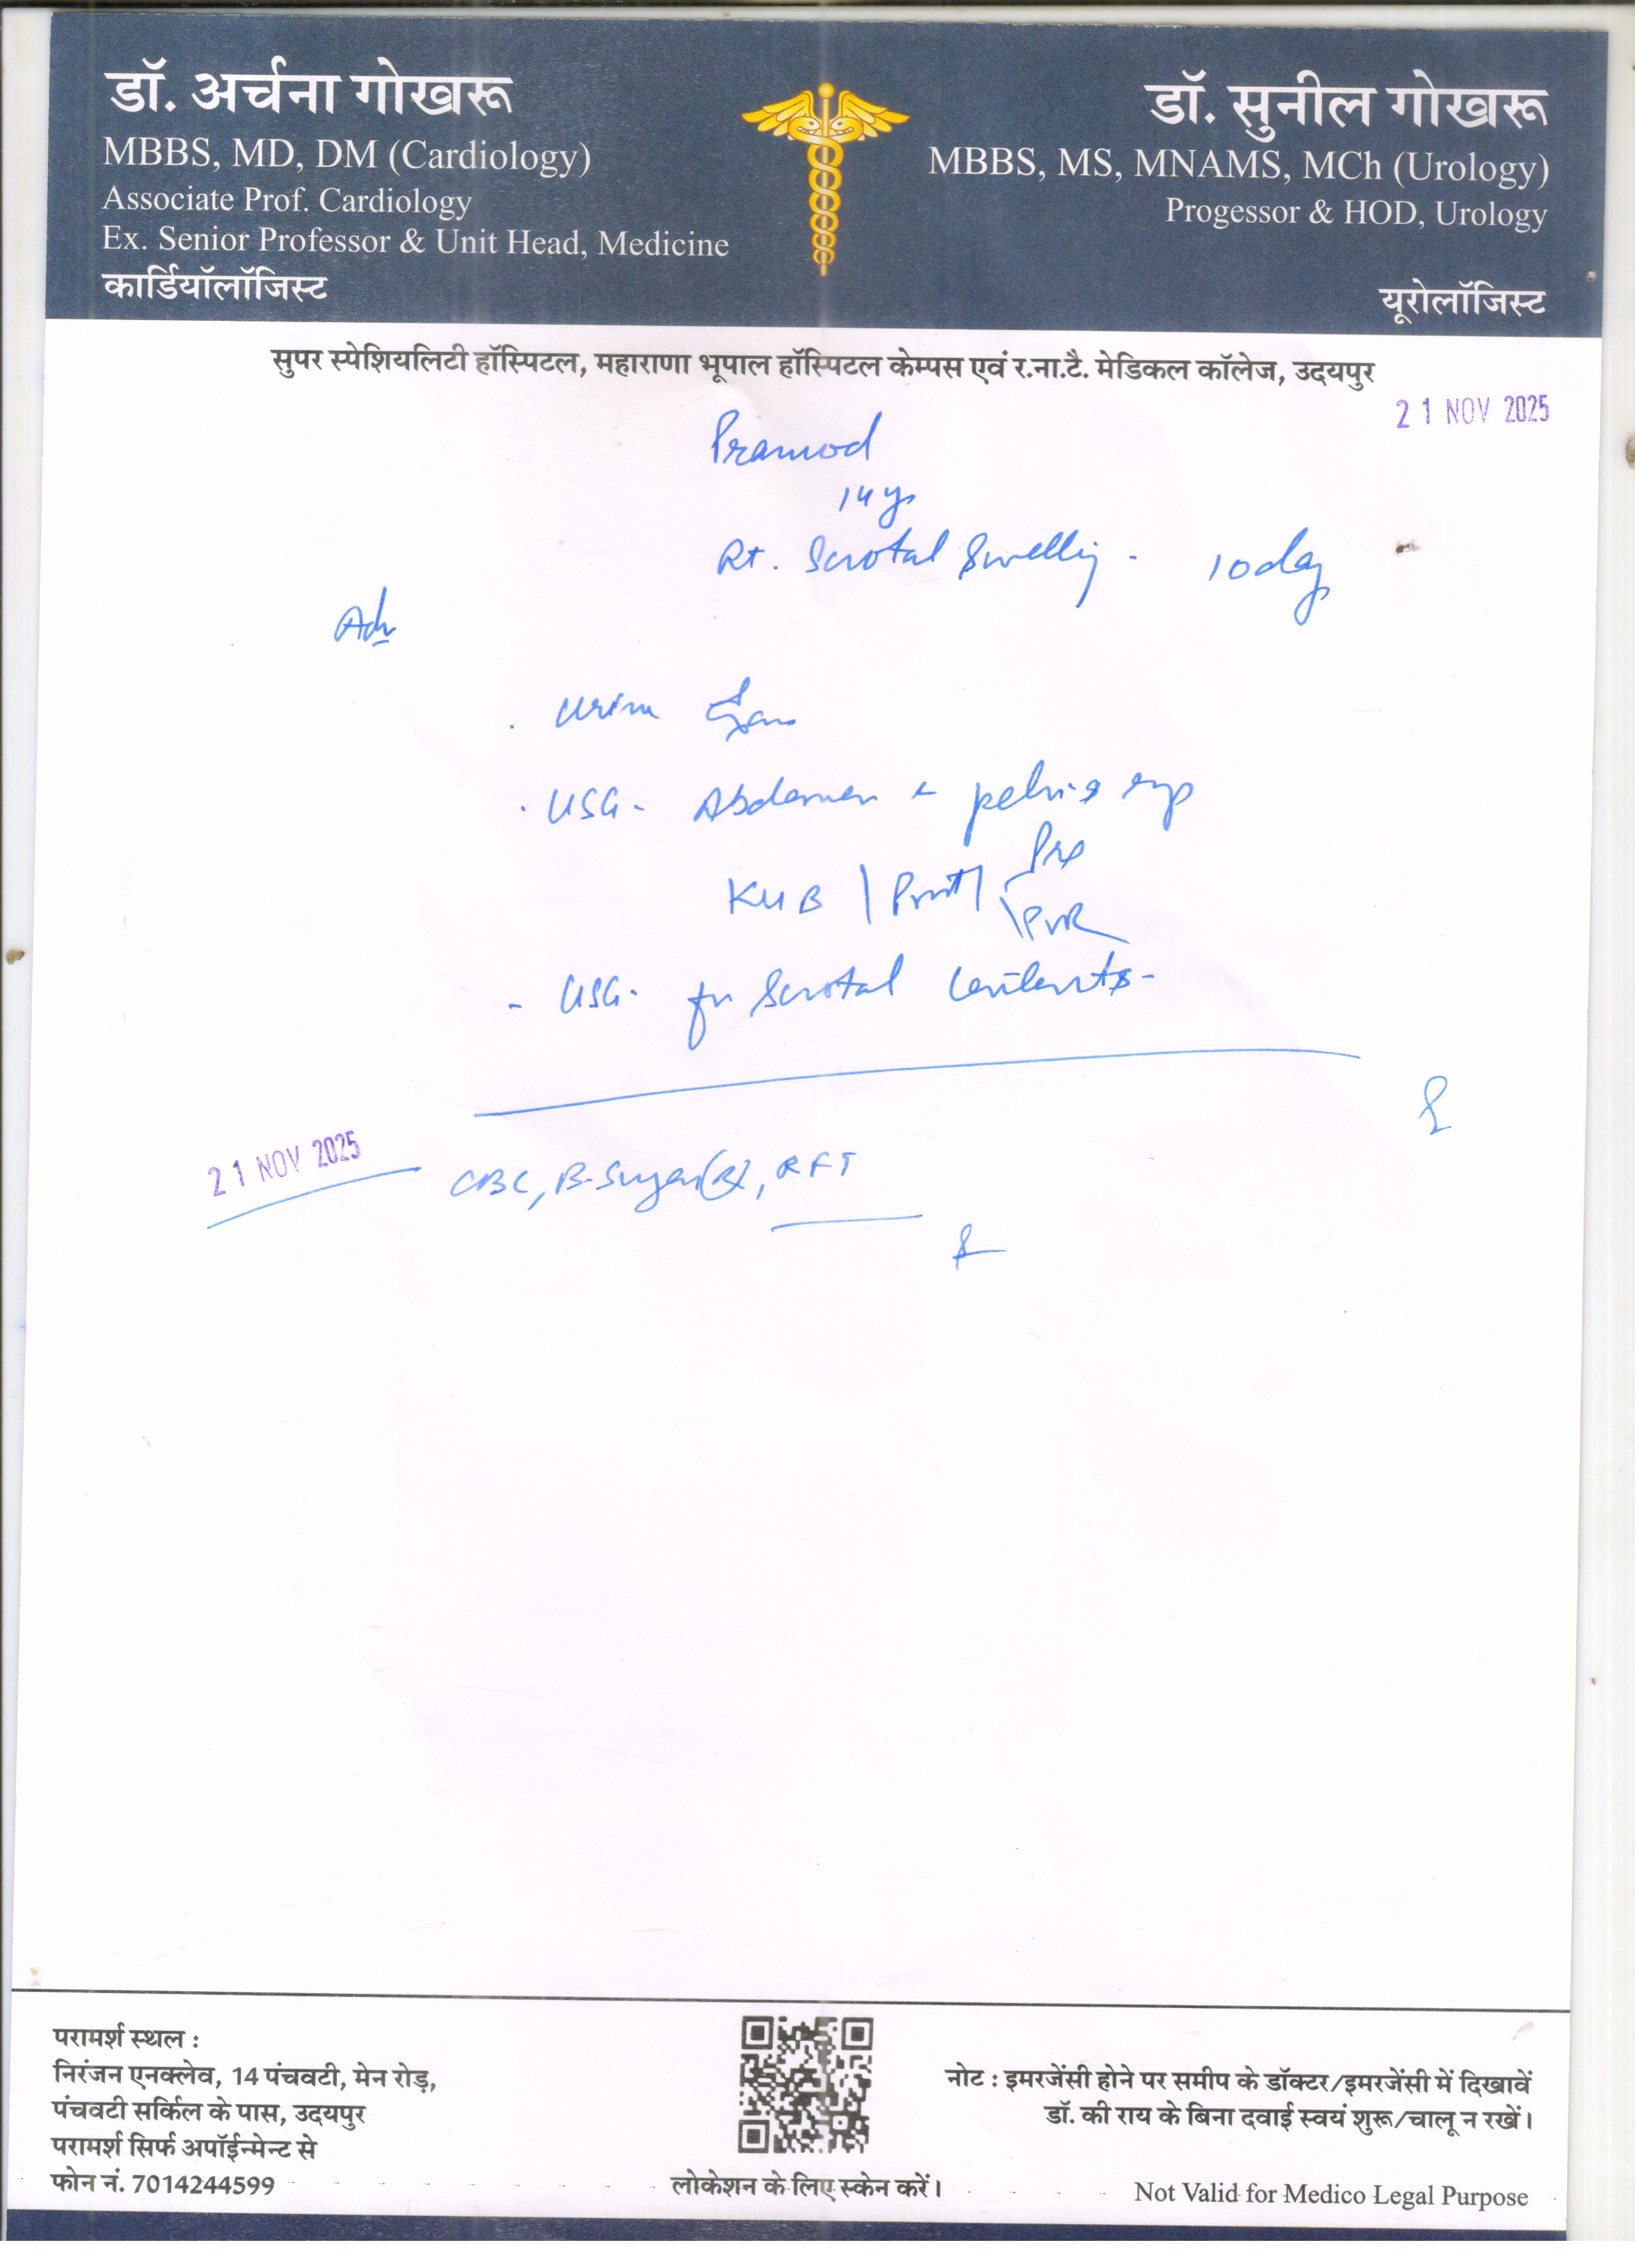 डॉ. अर्चना गोखरू
MBBS, MD, DM (Cardiology)
Associate Prof. Cardiology
Ex. Senior Professor & Unit Head, Medicine
कार्डियॉलॉजिस्ट
डॉ. सुनील गोखरू
MBBS, MS, MNAMS, MCh (Urology)
Progessor & HOD, Urology
यूरोलॉजिस्ट
सुपर स्पेशियलिटी हॉस्पिटल, महाराणा भूपाल हॉस्पिटल केम्पस एवं र.ना.टै. मेडिकल कॉलेज, उदयपुर
21 NOV 2025
Pramod
14 y
Rt. Scrotal Swelling - 10 day
Adv
. Urine
. USG - Abdomen pelvis
KUB | Prost | Pre
PVR
- USG. for Scrotal Contents -
21 NOV 2025
CBC, B-Sugar (R), RFT
परामर्श स्थल :
निरंजन एनक्लेव, 14 पंचवटी, मेन रोड़,
पंचवटी सर्किल के पास, उदयपुर
परामर्श सिर्फ अपॉईन्मेन्ट से
फोन नं. 7014244599
लोकेशन के लिए स्केन करें।
नोट : इमरजेंसी होने पर समीप के डॉक्टर/इमरजेंसी में दिखावें
डॉ. की राय के बिना दवाई स्वयं शुरू/चालू न रखें।
Not Valid for Medico Legal Purpose